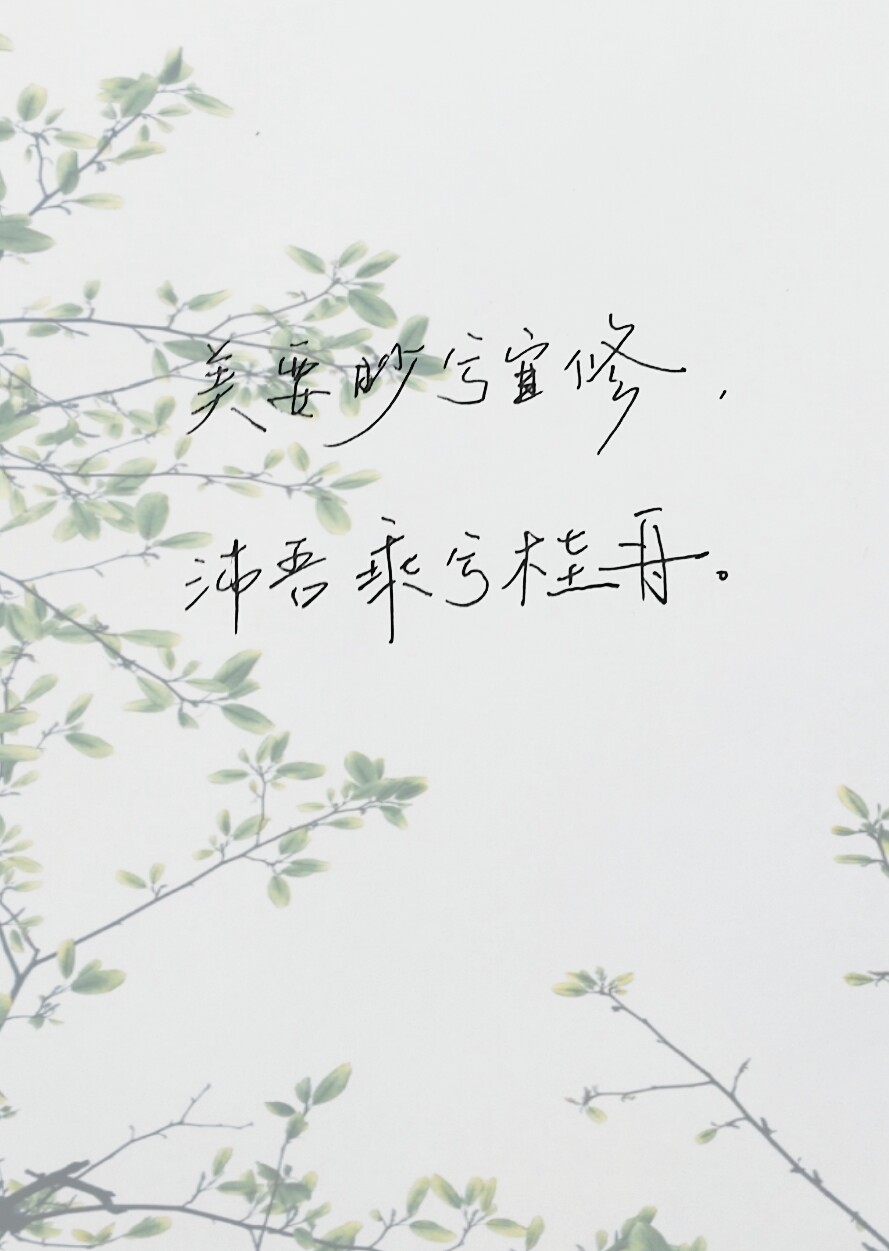 美要眇兮宜修，
沛吾乘兮桂舟。